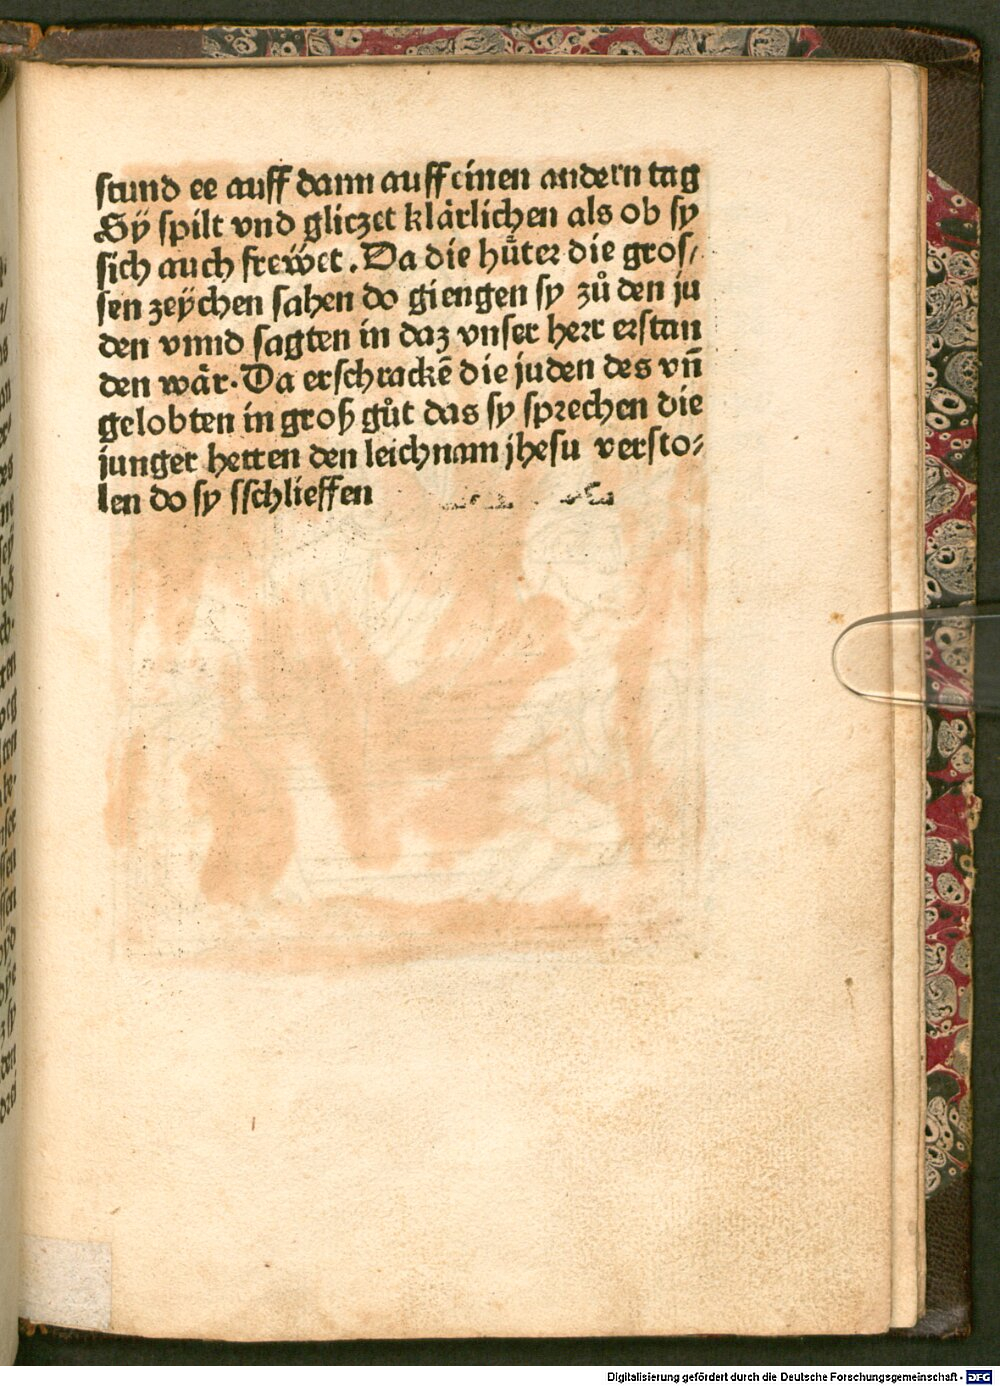 stund ee auff dann auff einen andern tag
Sÿ spilt vnd gliczet klärlichen als ob sy
sich auch frewet. Da die hüter die gros/
sen zeÿchen sahen do giengen sy zů den ju
den vnnd sagten in daz vnser herr erstan
den wär. Da erschrackē die juden des vn̄
gelobten in groß gůt das sy sprechen die
junger hetten den leichnam jhesu versto/
len do sy sschlieffen
Digitalisierung gefördert durch die Deutsche Forschungsgemeinschaft - DFG